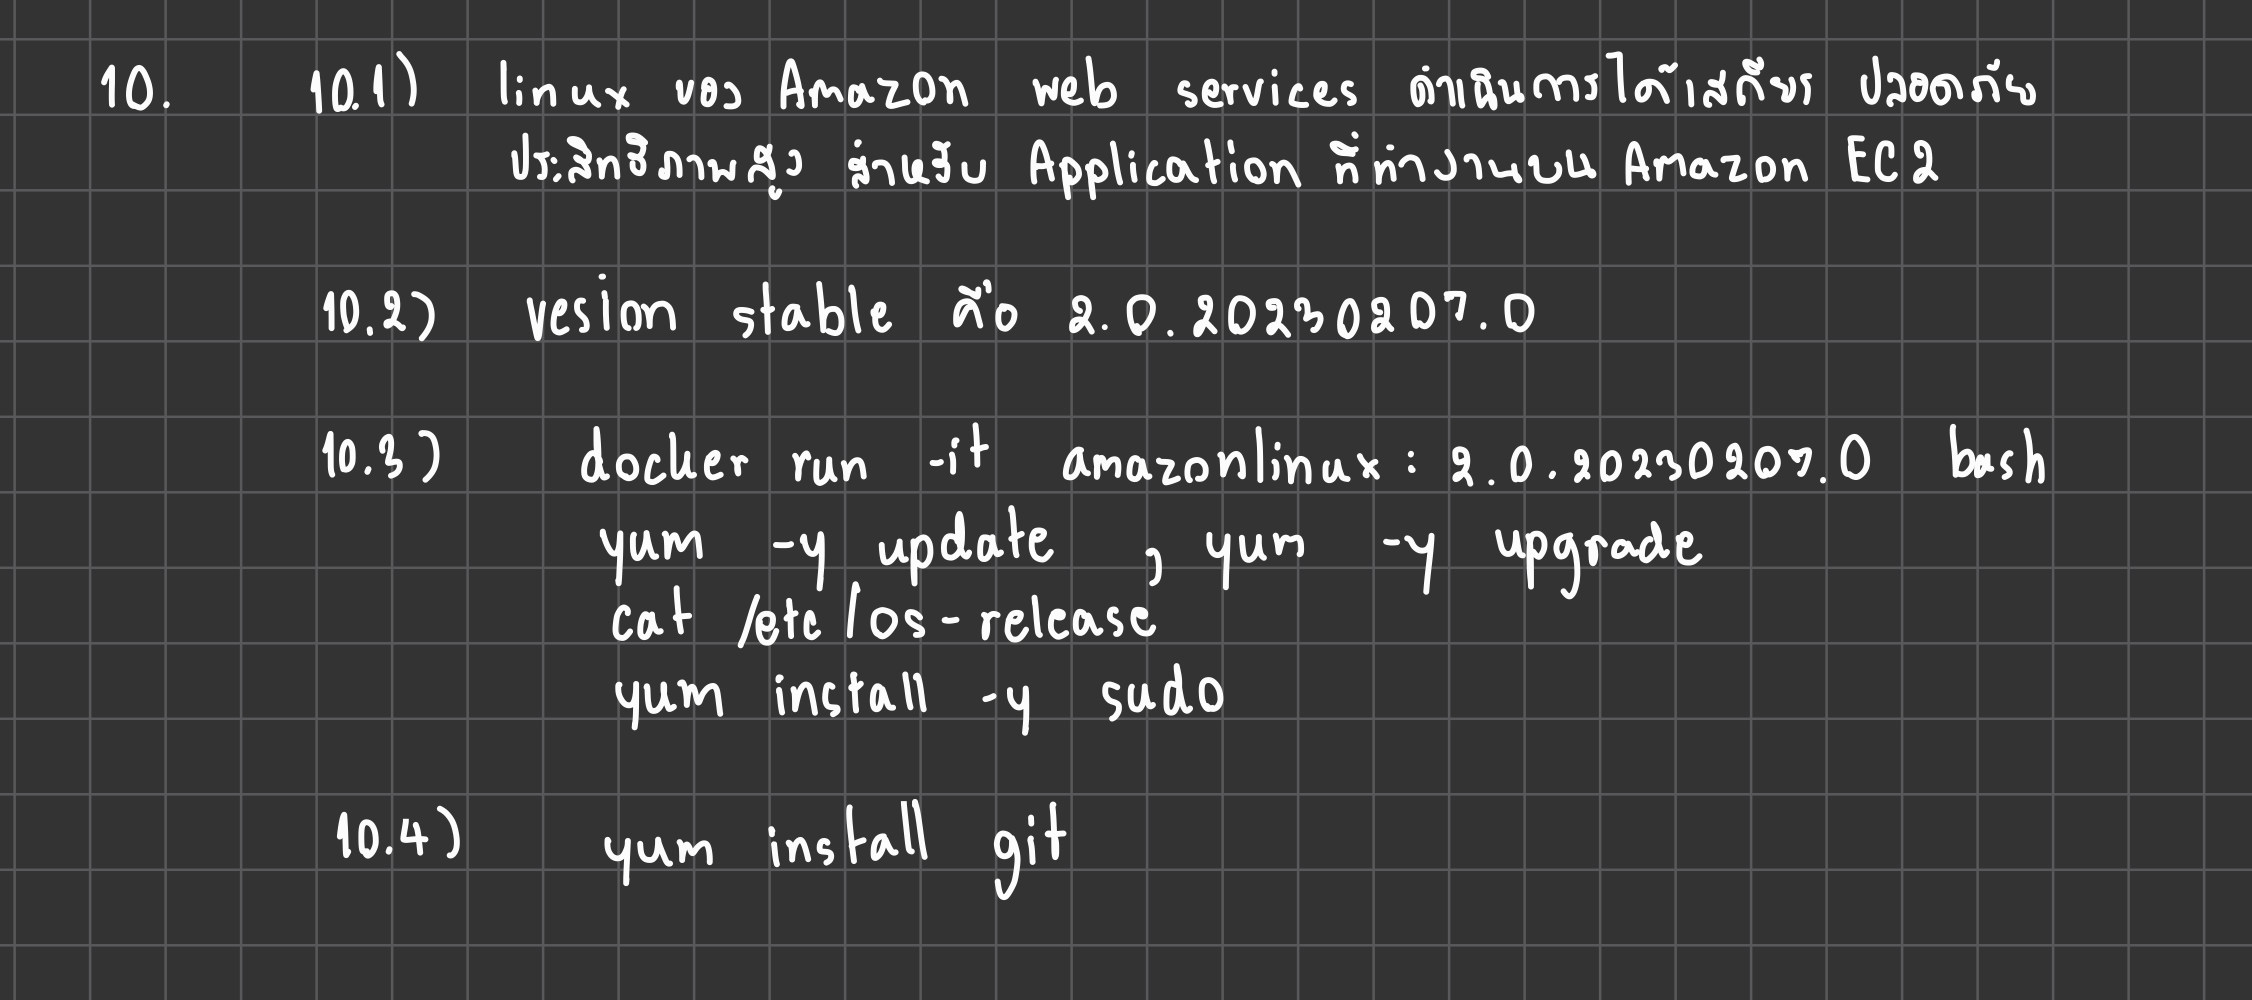 10. 10.1) linux ของ Amazon web services ดำเนินการได้เสถียร ปลอดภัย
ประสิทธิภาพสูง สำหรับ Application ที่ทำงานบน Amazon EC2
10.2) vesion stable คือ 2.0.20230207.0
10.3) docker run -it amazonlinux: 2.0.20230207.0 bash
yum -y update , yum -y upgrade
cat /etc/os-release
yum install -y sudo
10.4) yum install git